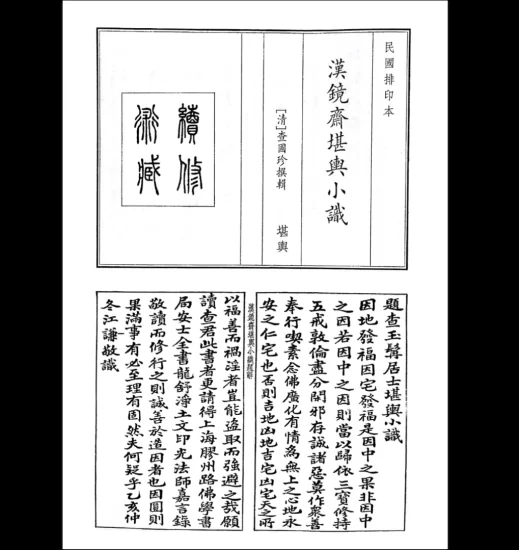 民國排印本
漢鏡齋堪輿小識
[清]查國珍撰輯
堪輿
續修
術藏
題查玉聲居士堪輿小識
因地發福因宅發福是因中之果非因中
之因若因中之因則當以歸依三寶修持
五戒敦倫盡分閑邪存誠諸惡莫作眾善
奉行喫素念佛廣化有情為無上之心地永
安之仁宅也否則吉地凶地吉宅凶宅天之所
漢鏡齋堪輿小識題辭
以福善而禍淫者豈能盜取而強避之哉願
讀查君此書者更請得上海膠州路佛學書
局安士全書龍舒淨土文印光法師嘉言錄
敬讀而修行之則誠善於造因者也因圓則
果滿事有必至理有固然夫何疑乎乙亥仲
冬江謙敬識